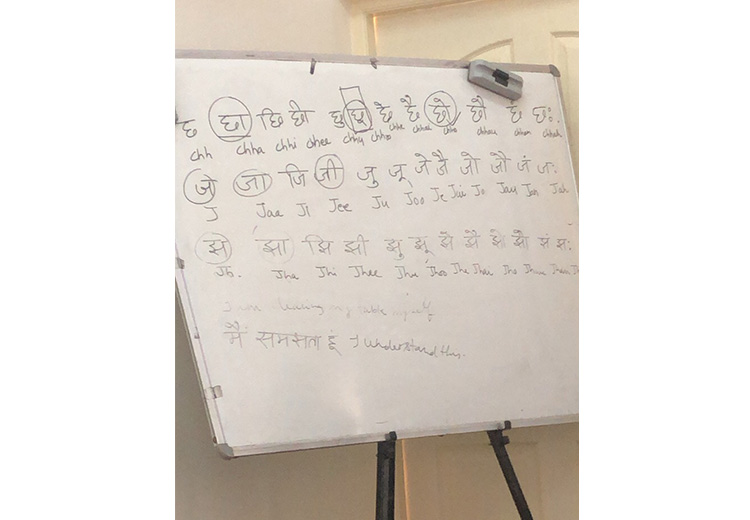 छ छा छि छी छु छू छे छै छो छौ छं छः
chh chha chhi chhee chhu chhoo chhe chhai chho chhau chham chhah
ज जा जि जी जु जू जे जै जो जौ जं जः
J Jaa Ji Jee Ju Joo Je Jai Jo Jau Jah
झ झा झि झी झु झू झे झै झो झौ झं झः
Jh. Jha Jhi Jhee Jhu Jhoo Jhe Jhai Jho Jhau
my table
मैं समझता हूं I understand this.